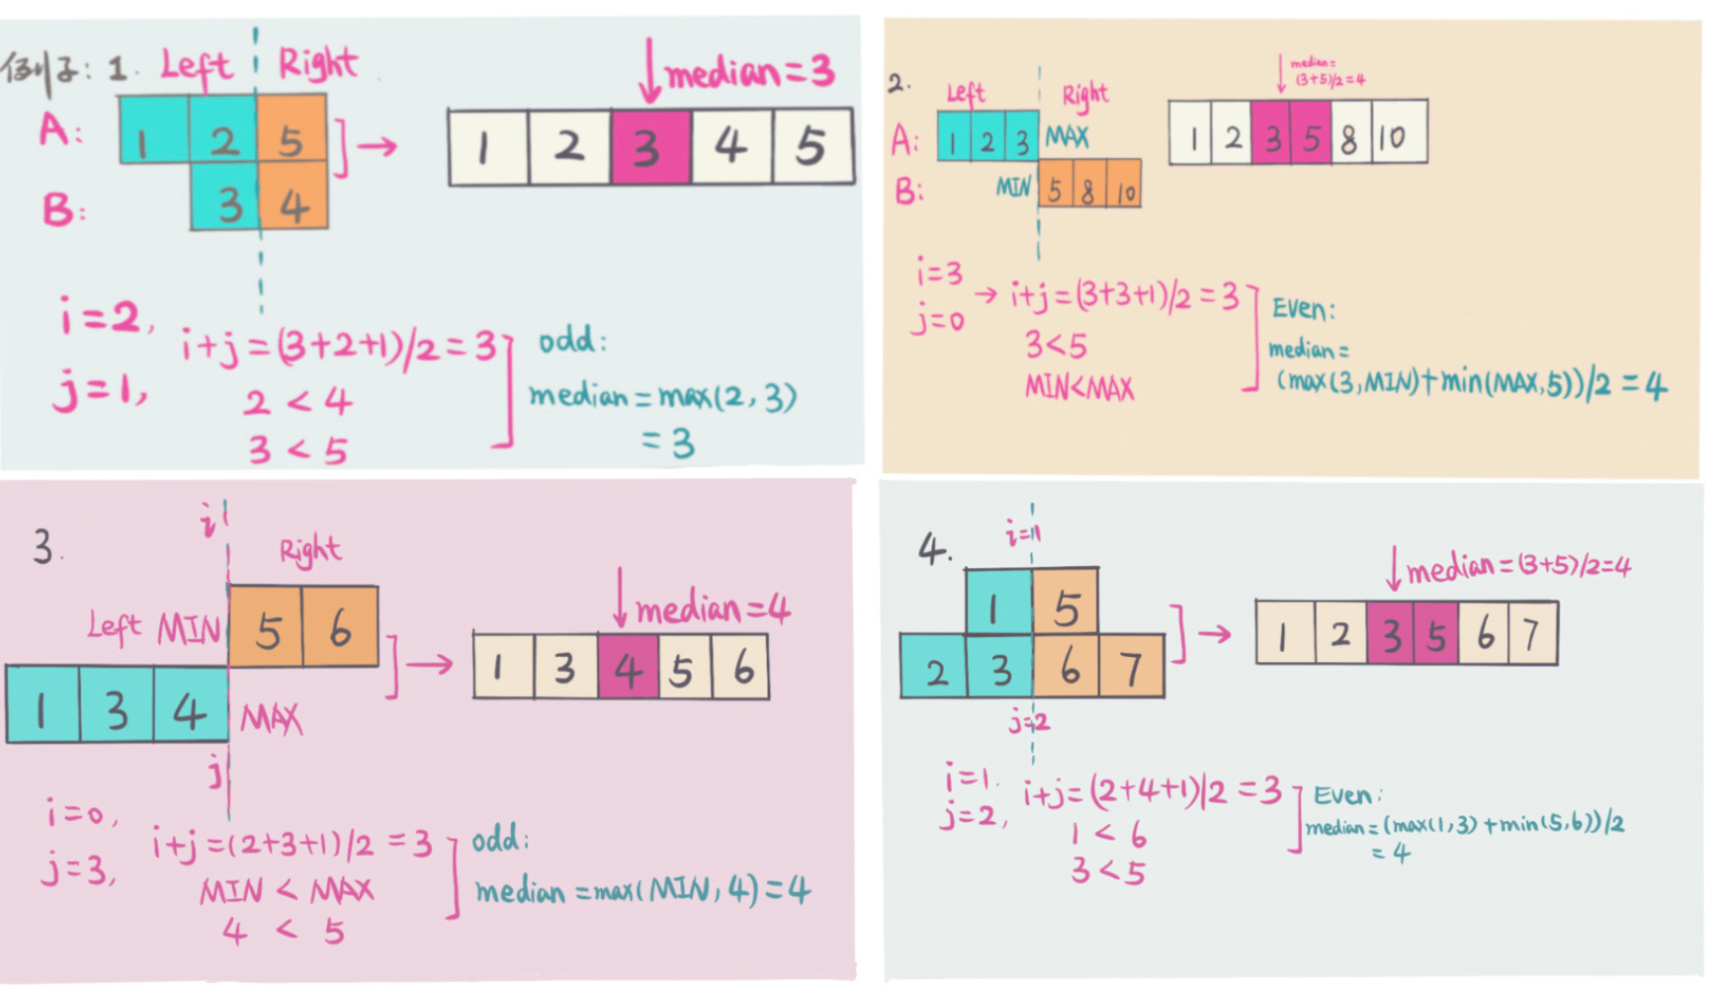 例子: 1.
Left Right
A: 1 2 5
B: 3 4
median=3
1 2 3 4 5
i=2,
j=1,
i+j=(3+2+1)/2=3
2 < 4
3 < 5
odd:
median=max(2,3)
=3
2.
Left Right
A: 1 2 3 MAX
B: MIN 5 8 10
median=
(3+5)/2=4
1 2 3 5 8 10
i=3
j=0
→ i+j=(3+3+1)/2=3
3<5
MIN<MAX
Even:
median=
(max(3,MIN)+min(MAX,5))/2=4
3.
i
Right
Left MIN 5 6
1 3 4 MAX
j
median=4
1 3 4 5 6
i=0,
j=3,
i+j=(2+3+1)/2=3
MIN < MAX
4 < 5
odd:
median=max(MIN,4)=4
4.
i=1
1 5
2 3 6 7
j=2
median=(3+5)/2=4
1 2 3 5 6 7
i=1.
j=2,
i+j=(2+4+1)/2=3
1 < 6
3<5
Even:
median=(max(1,3)+min(5,6))/2
=4